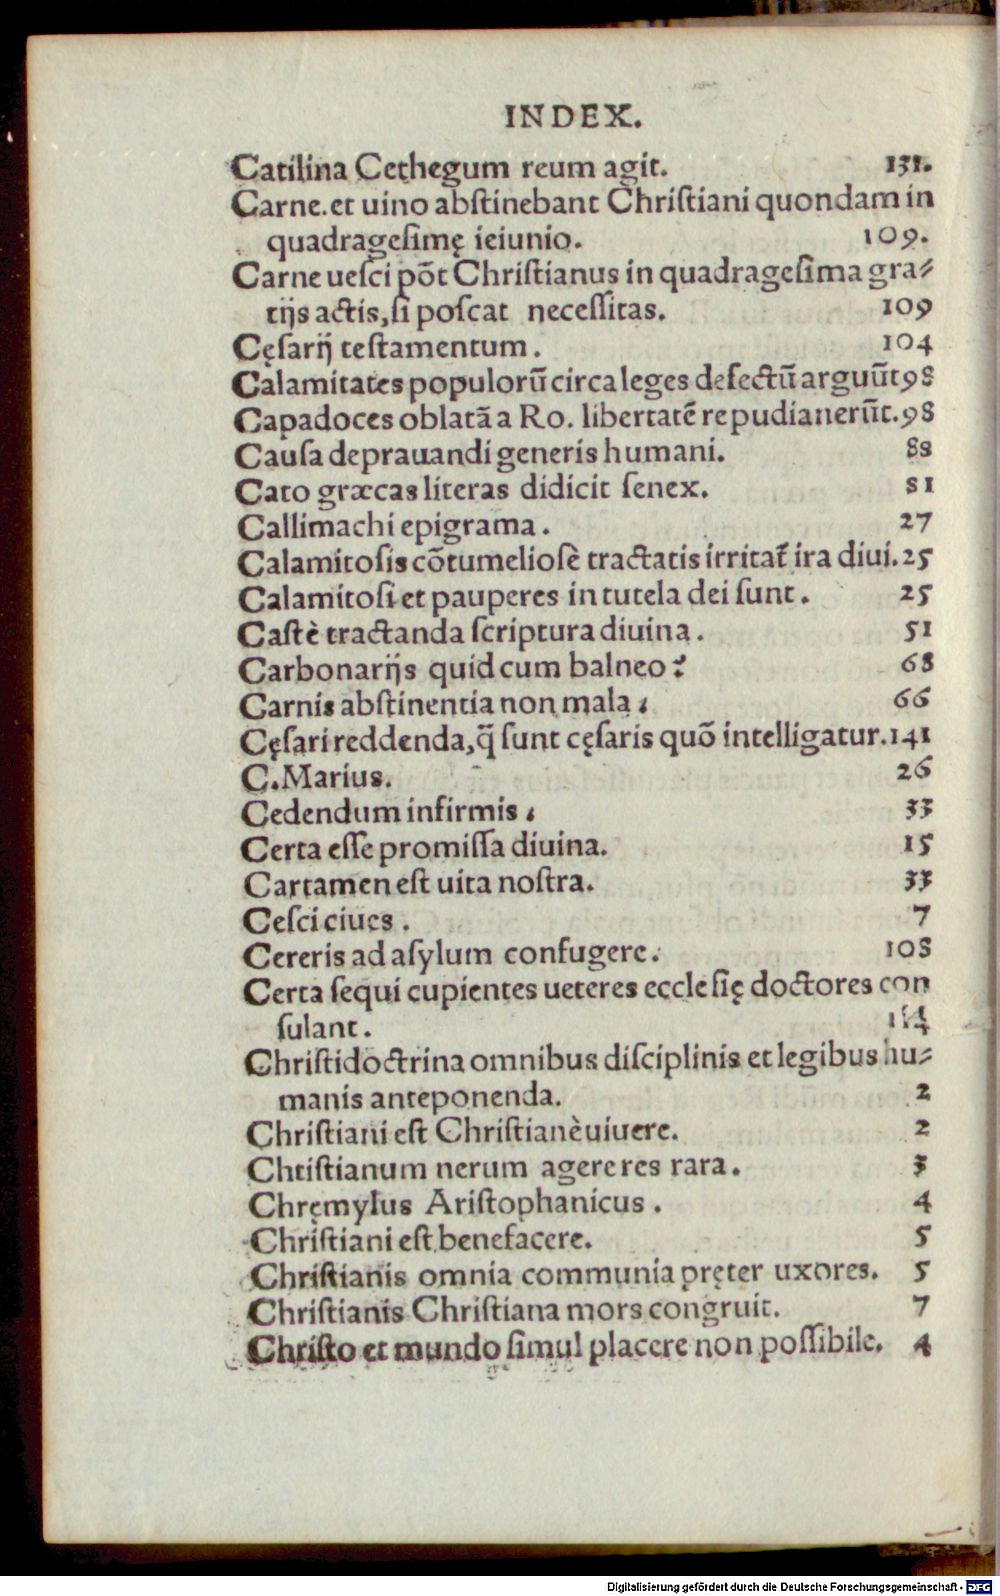 INDEX.
Catilina Cethegum reum agit. 131.
Carne.et uino abſtinebant Chriſtiani quondam in
quadrageſimę ieiunio. 109.
Carne ueſci põt Chriſtianus in quadrageſima gra⸗
tijs actis,ſi poſcat neceſſitas. 109
Cęſarij teſtamentum. 104
Calamitates populorũ circa leges defectũ arguũt 98
Capadoces oblatã a Ro. libertatẽ repudianerũt. 98
Cauſa deprauandi generis humani. 88
Cato græcas literas didicit ſenex. 81
Callimachi epigrama. 27
Calamitoſis cõtumelioſè tractatis irritat̃ ira diui. 25
Calamitoſi et pauperes in tutela dei ſunt. 25
Caſtè tractanda ſcriptura diuina. 51
Carbonarijs quid cum balneo? 68
Carnis abſtinentia non mala. 66
Cęſari reddenda,q̃ ſunt cęſaris quõ intelligatur. 141
C.Marius. 26
Cedendum infirmis. 33
Certa eſſe promiſſa diuina. 15
Cartamen eſt uita noſtra. 33
Ceſci ciues. 7
Cereris ad aſylum confugere. 108
Certa ſequi cupientes ueteres eccleſię doctores con
ſulant.
Chriſti doctrina omnibus diſciplinis et legibus hu⸗
manis anteponenda. 2
Chriſtiani eſt Chriſtianè uiuere. 2
Chtiſtianum nerum agere res rara. 3
Chręmylus Ariſtophanicus. 4
Chriſtiani eſt benefacere. 5
Chriſtianis omnia communia pręter uxores. 5
Chriſtianis Chriſtiana mors congruit. 7
Chriſto et mundo ſimul placere non poſſibile. 4
Digitalisierung gefördert durch die Deutsche Forschungsgemeinschaft - DFG